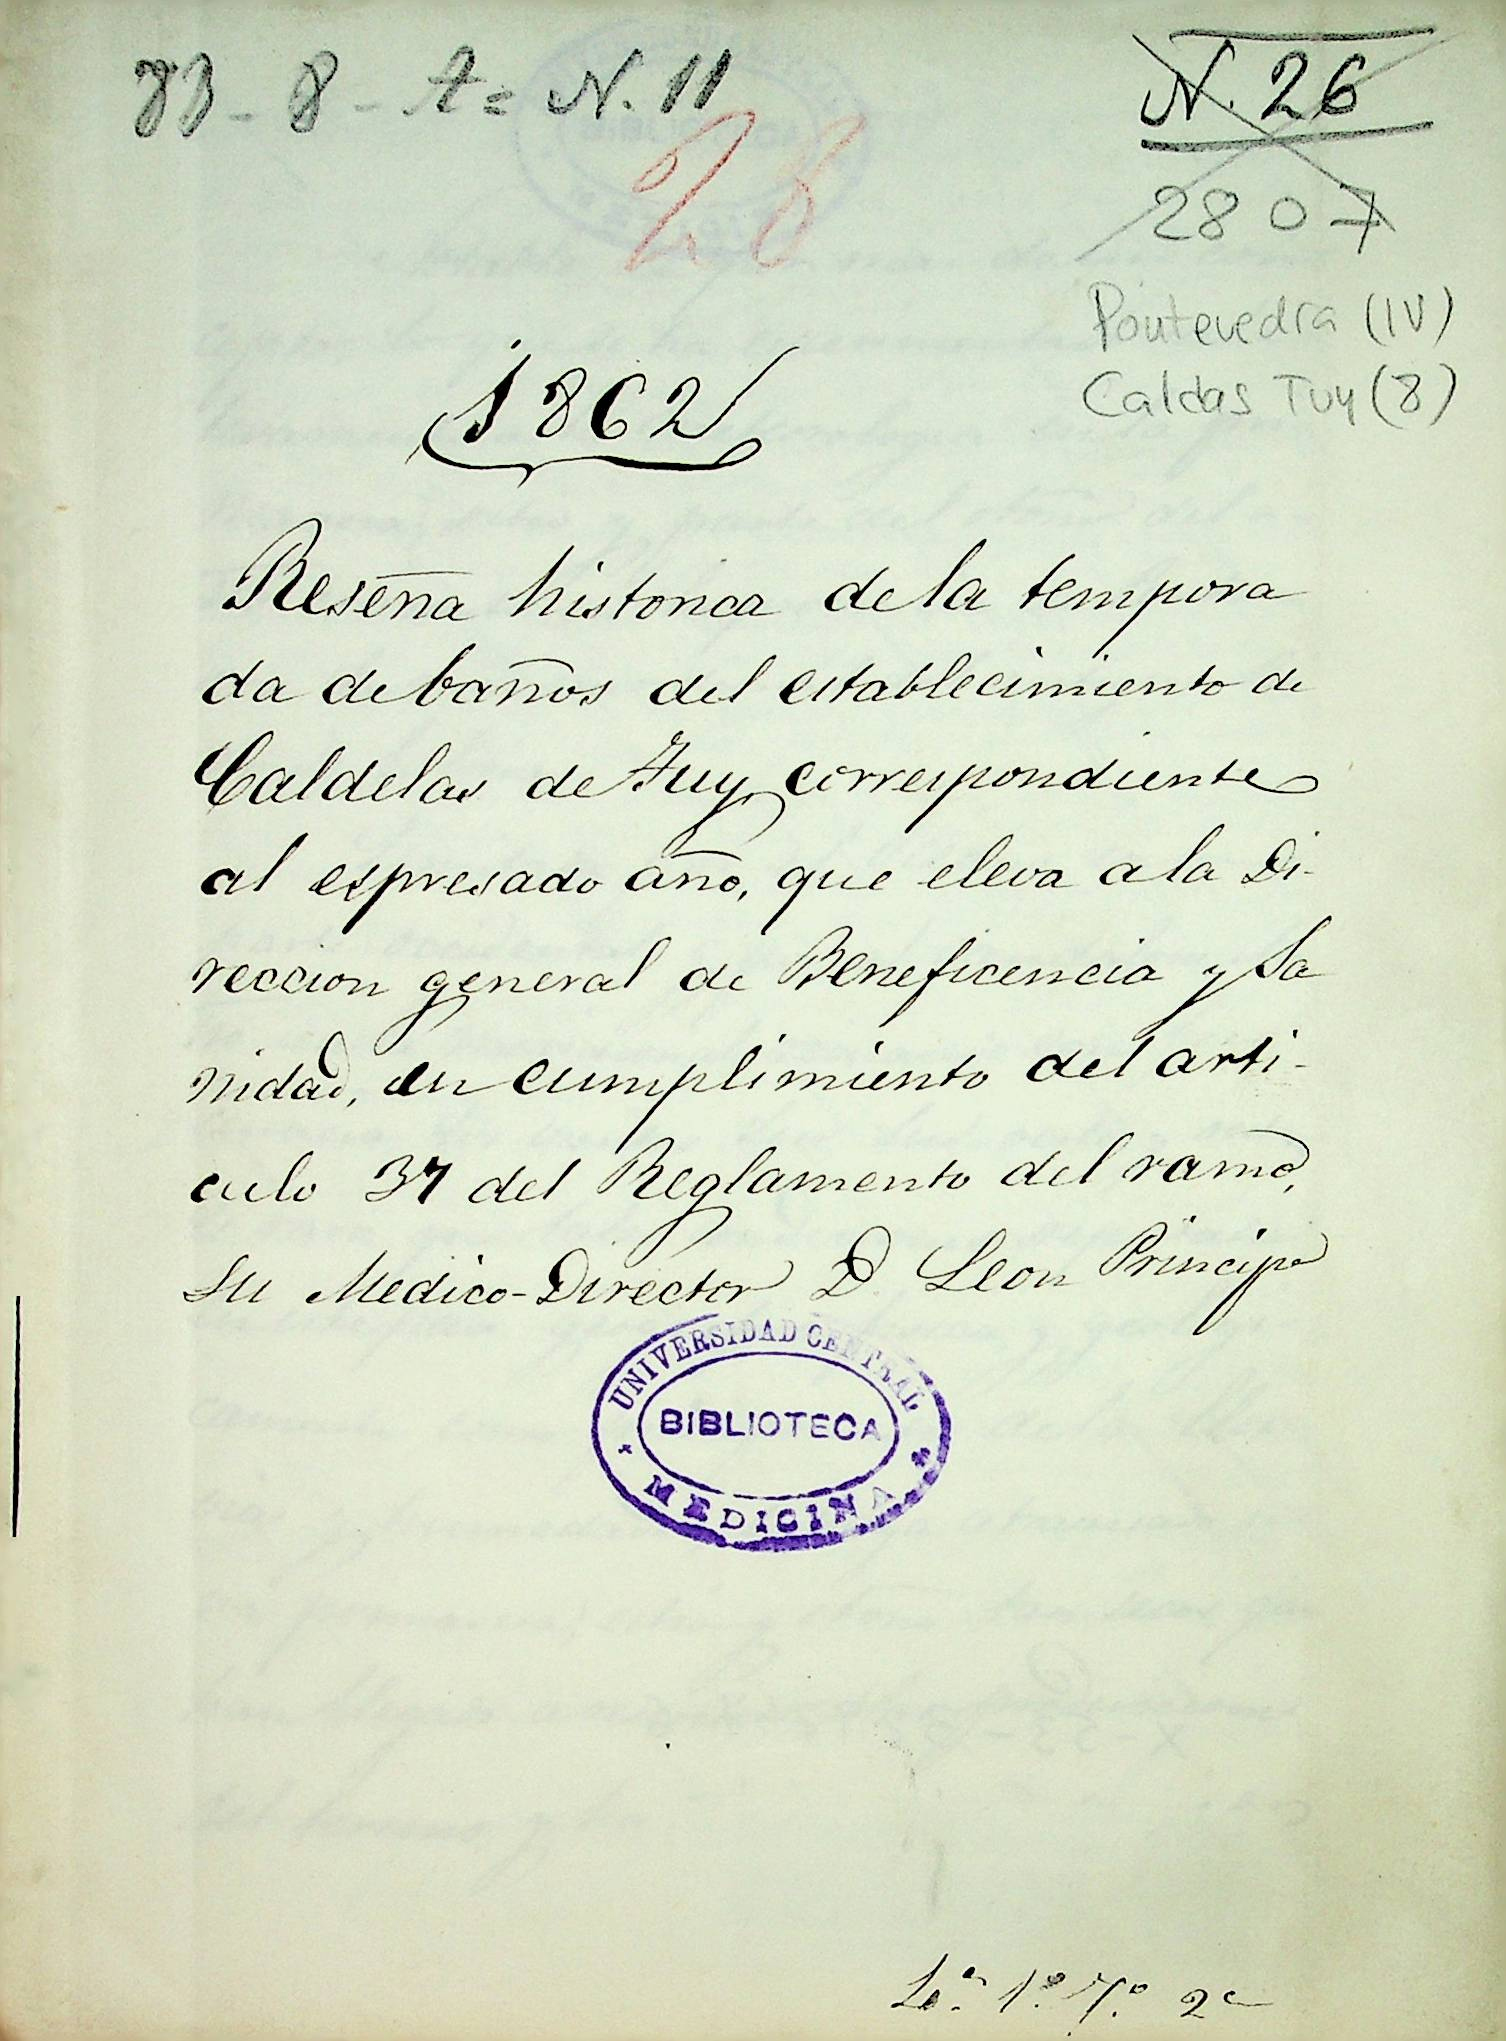 83-8-A= N. 11
28
N. 26
2807
Pontevedra (IV)
Caldas Tuy (8)
1862
Reseña historica de la tempora
da de baños del establecimiento de
Caldelas de Tuy correspondiente
al espresado año, que eleva a la Di-
reccion general de Beneficencia y Sa
nidad, en cumplimiento del arti-
culo 37 del Reglamento del ramo,
su Medico-Director D. Leon Principe
UNIVERSIDAD CENTRAL
BIBLIOTECA
MEDICINA
1º 7º 2ª